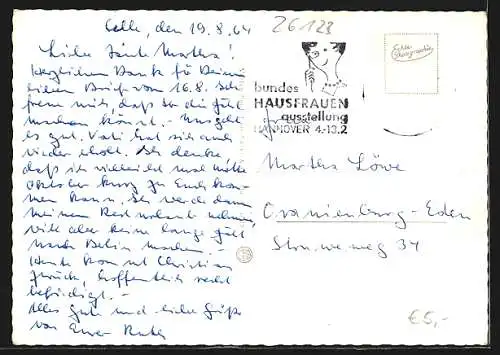 Celle, den 19.8.64
Liebe Tante Martha!
Herzlichen Dank für Deinen
lieben Brief vom 16.8. Ich
freu mich, daß Du die gut
machen konnst. - Uns geht
es gut. Vati hat sich auch
wieder erholt. Ich denke
daß ich vielleicht mal Mitte
Oktober kurz zu Euch kom-
men kann. Ich werde dann
meinen Rest nehmen,
will aber keine lange
nach Berlin machen. -
Heute kommt Christian
zurück, hoffentlich recht
befriedigt. -
Alles Gute und liebe Grüße
von Eurer
26123
Echte
Photographie
bundes
HAUSFRAUEN
ausstellung
HANNOVER 4.-13.2
Frau
Martha Löwe
Oranienburg-Eden
Struweweg 34
€5,-